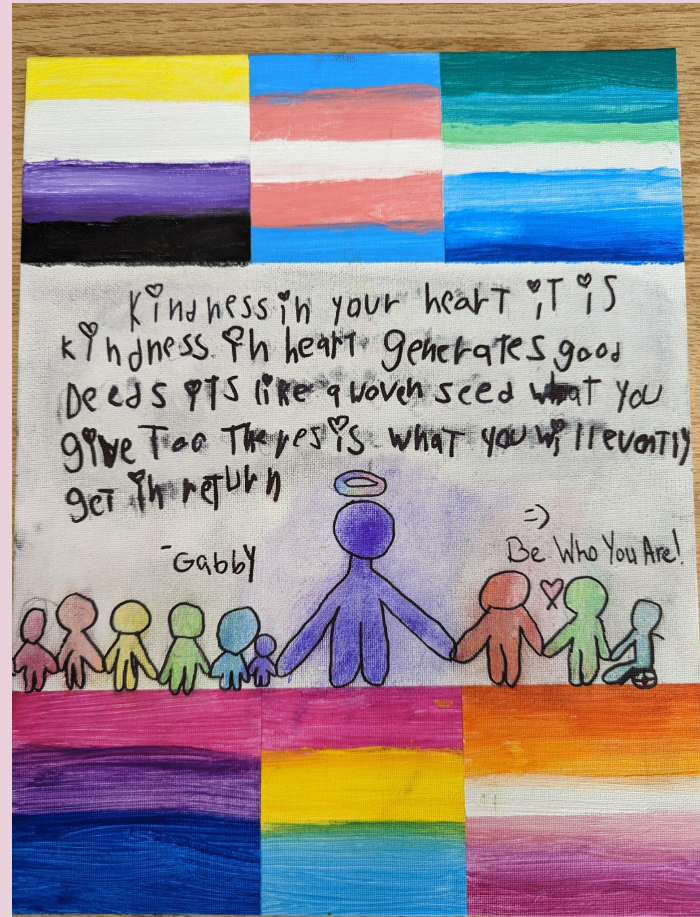 Kindness in your heart it is
kindness in heart generates good
Deeds its like a woven seed what you
give Too The res is what you will evently
get in return
-Gabby
=)
Be Who You Are!